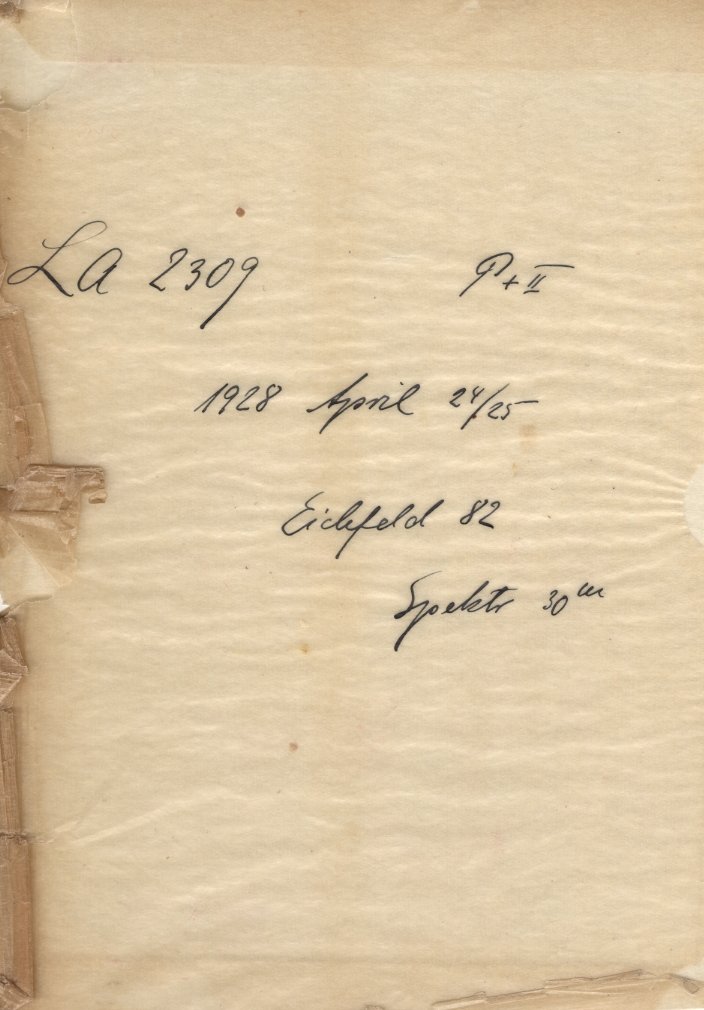 LA 2309 P + II
1928 April 24/25
Eichfeld 82
Spektr 30 m